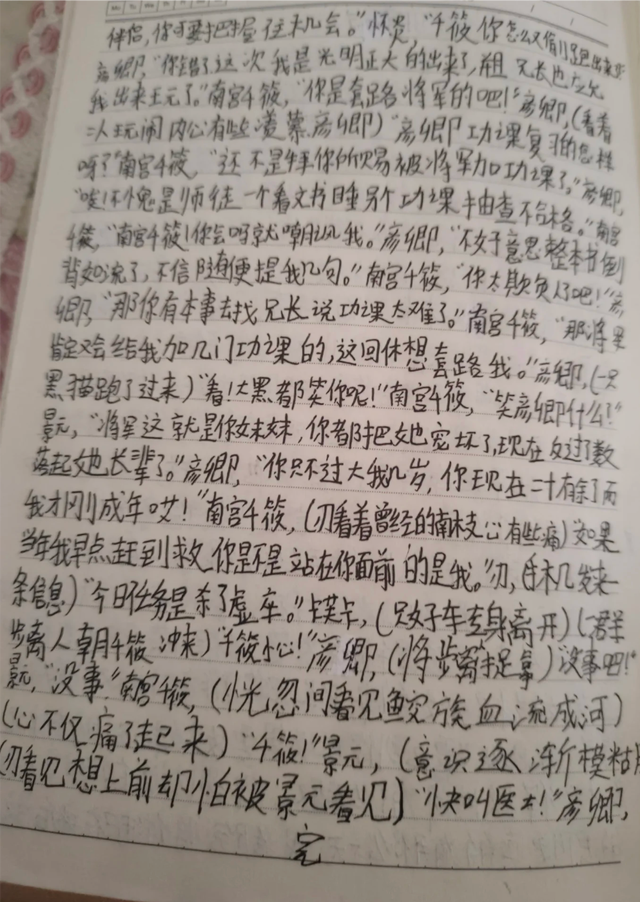 伴侣，你可要把握住机会。”怀炎，“千筱你怎么又偷
彦卿，“你错了这次我是光明正大的出来，
我出来玩了。”南宫千筱，“你是套路将军的吧！”彦卿，(看着
二人玩闹内心有些羡慕彦卿)“彦卿功课复习的怎样
呀？”南宫千筱，“还不是拜你所赐被将军加功课了。”彦卿，
“唉！不愧是师徒一个看文书睡另个功课抽查不合格。”南宫
千筱，“南宫千筱！你会吗就嘲讽我。”彦卿，“不好意思整本书倒
背如流了，不信随便提我几句。”南宫千筱，“你太欺负人了吧！”彦
卿，“那你有本事去找兄长说功课太难了。”南宫千筱，“那将军
肯定又会给我加几门功课的，这回休想套路我。”彦卿，(一只
黑猫跑了过来)“看！大黑都笑你呢！”南宫千筱，“笑彦卿什么？”
景元，“将军这就是你妹妹，你都把她宠坏了，现在反过了数
落起她长辈了。”彦卿，“你只不过大我几岁，你现在二十有余了而
我才刚成年哎！”南宫千筱，(刃看着曾经的
心有些痛)如果
当年我早点赶到救你是不是站在你面前的是我。”刃，(手机发来一
条信息)“今日任务是杀了虚卒。”卡芙卡，(只好转身离开)(群
步离人朝千筱冲来)“千筱小心！”彦卿，(将步离捉拿)“没事吧！”
景元，“没事”南宫千筱，(恍忽间看见
族血流成河)
(心不仅痛了起来)“千筱！”景元，(意识逐渐模糊)
(刃看见想上前却怕被景元看见)“快叫医士！”彦卿，
完